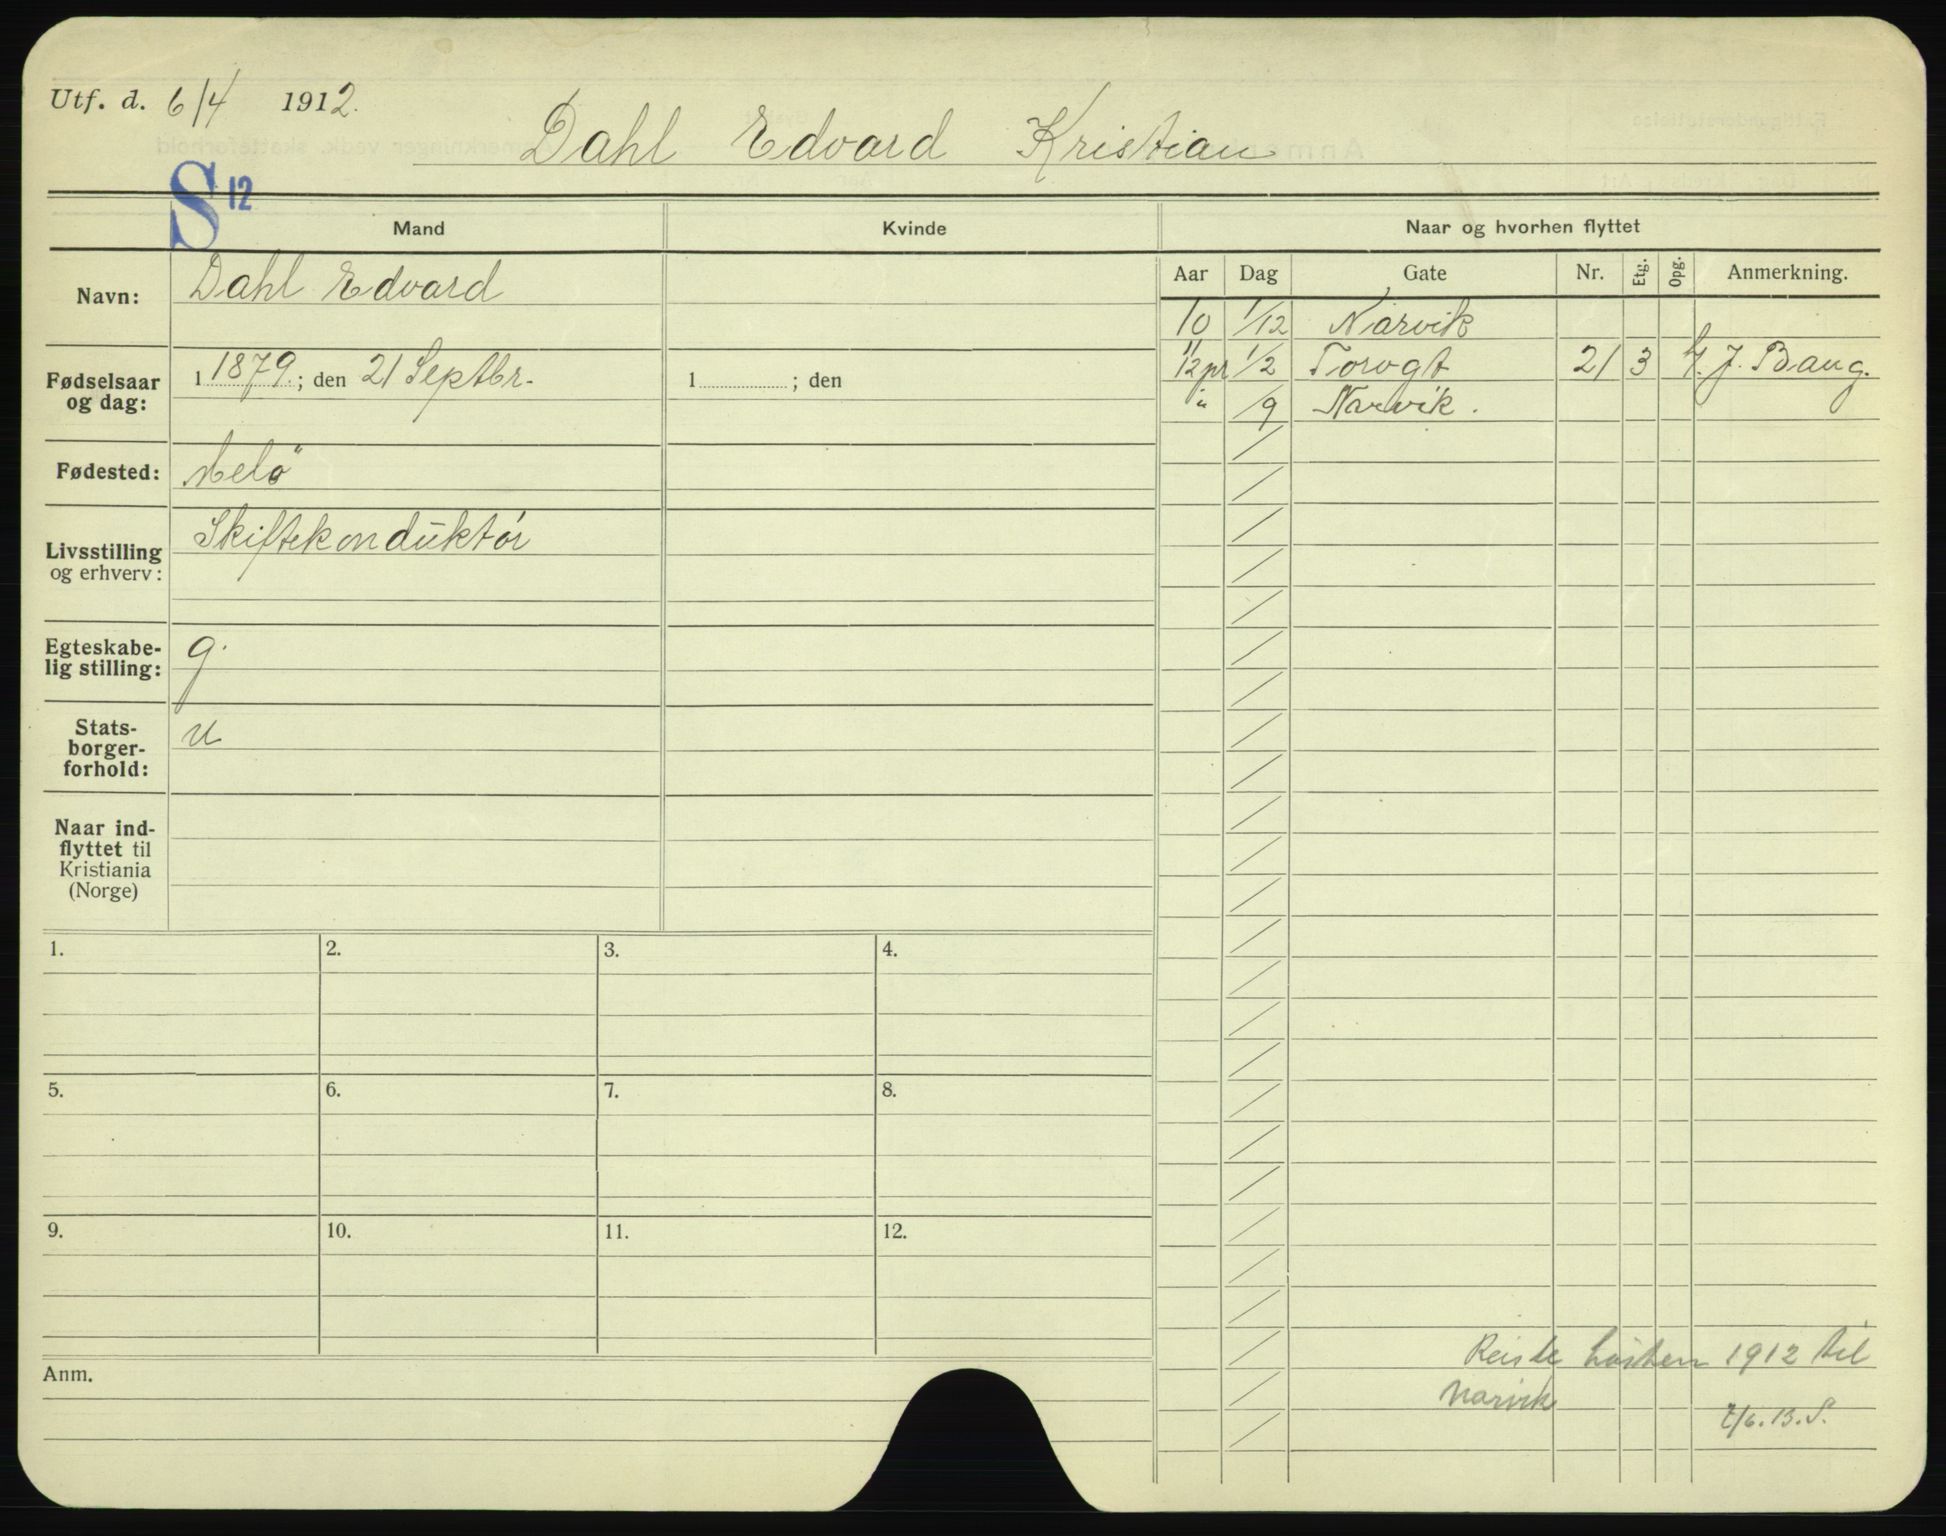 Utf. d. 6/4 1912.
Dahl Edvard Kristian
S 12
Mand Kvinde Naar og hvorhen flyttet
Aar Dag Gate Nr. Etg. Opg. Anmerkning.
Navn: Dahl Edvard
10 1/12 Narvik
Fødselsaar og dag: 1 1879.; den 21 Septbr. 1 ; den
12 pr 1/2 Torvgt 21 3 J. Baug.
" /9 Narvik.
Fødested: Melö
Livsstilling og erhverv: Skiftekonduktör
Egteskabe-
lig stilling: g.
Stats-
borger-
forhold: u
Naar ind-
flyttet til
Kristiania
(Norge)
1. 2. 3. 4.
5. 6. 7. 8.
9. 10. 11. 12.
Anm.
Reiste hösten 1912 til
Narvik
/6. 13. S.